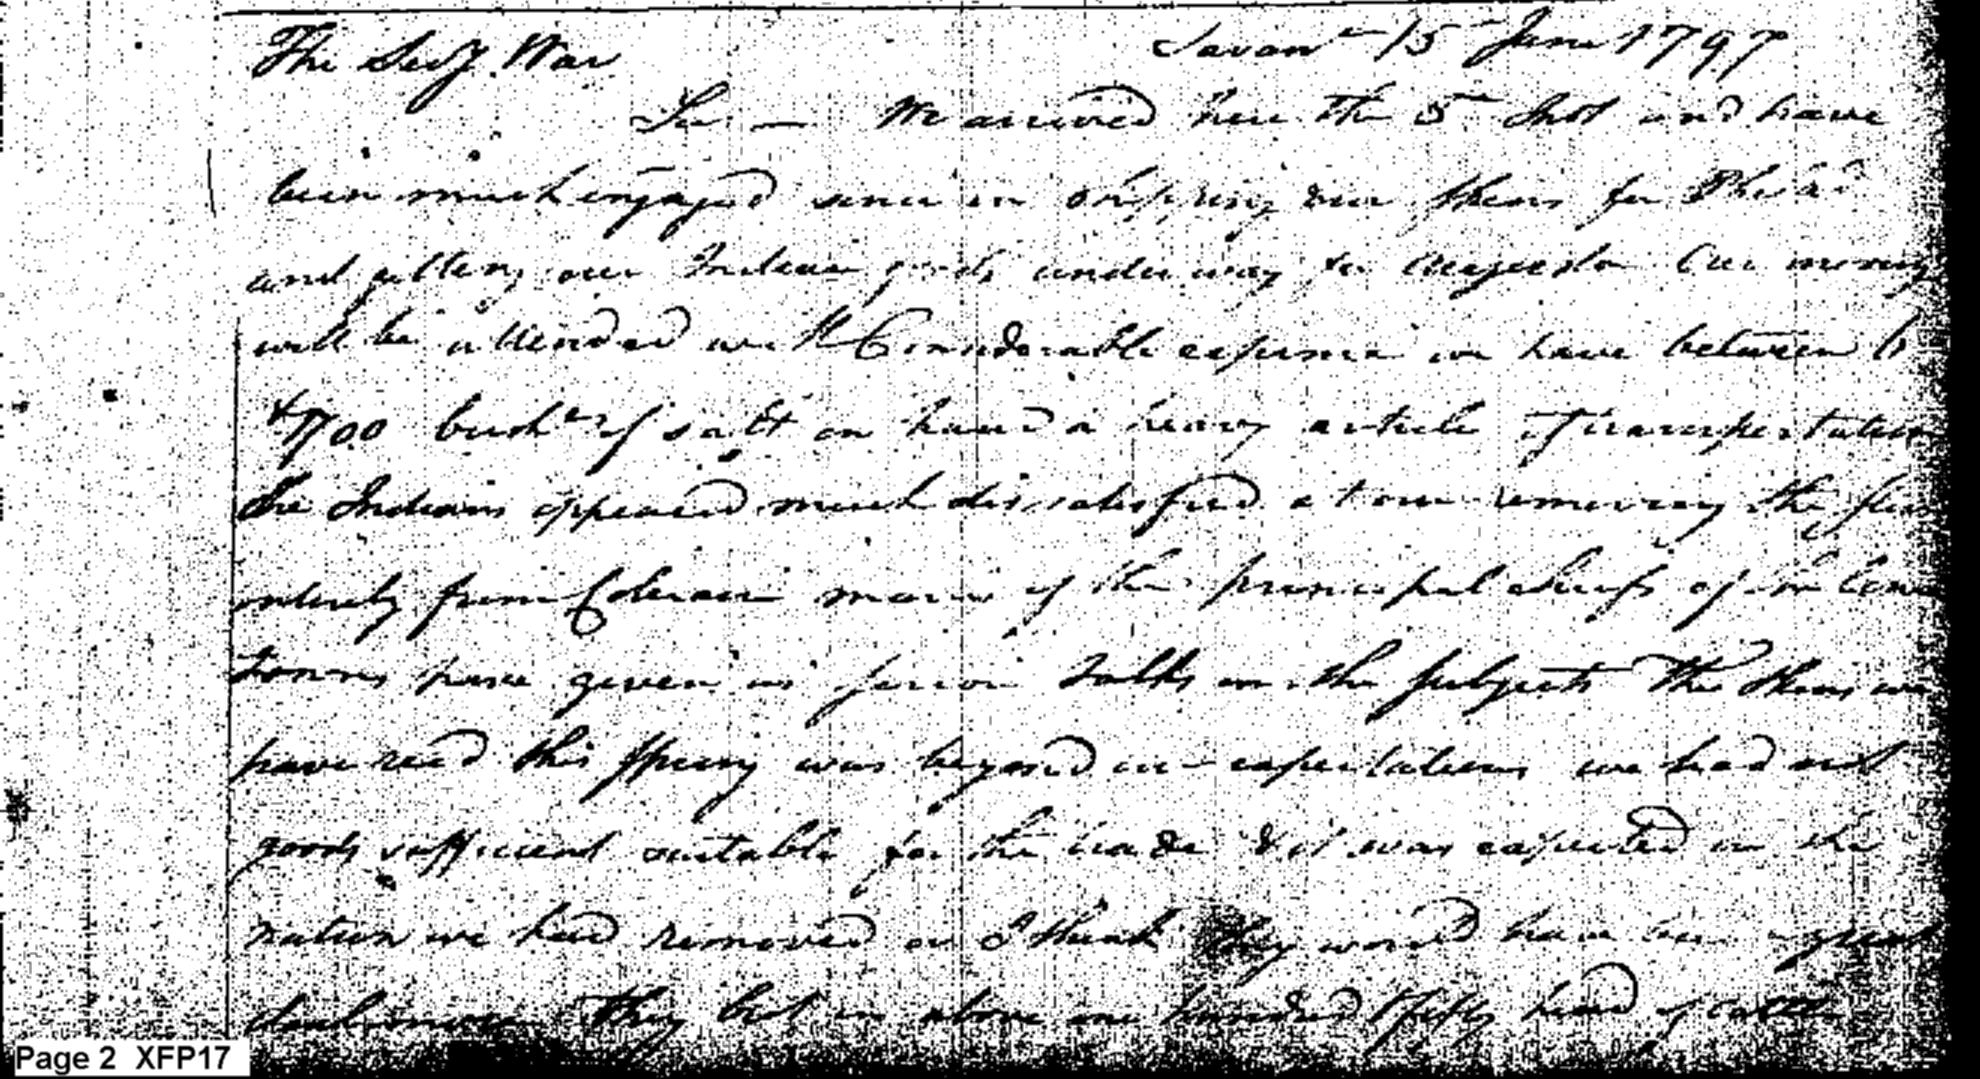 The Secy. War Savanh 15 June 1797
Sir — We arrived here the 5 Inst and have
been much engaged since in shipping our skins for Philad
and getting our Indian goods under way for Augusta Our moving
will be attended with Considerable expense we have between 6
& 700 bushls of salt on hand a heavy article of transportation
The Indians appeared much dissatisfied at our removing the
entirely from Coleraine many of the principal Chiefs of the Lower
Towns have given us serious Talks on the subject The skins we
have recd this Spring was beyond our expectations we had not
goods sufficient suitable for the trade & it was expected in the
nation we had removed or I think they would have been a great
deal more They bot in above one hundred & fifty head of Cattle
Page 2 XFP17